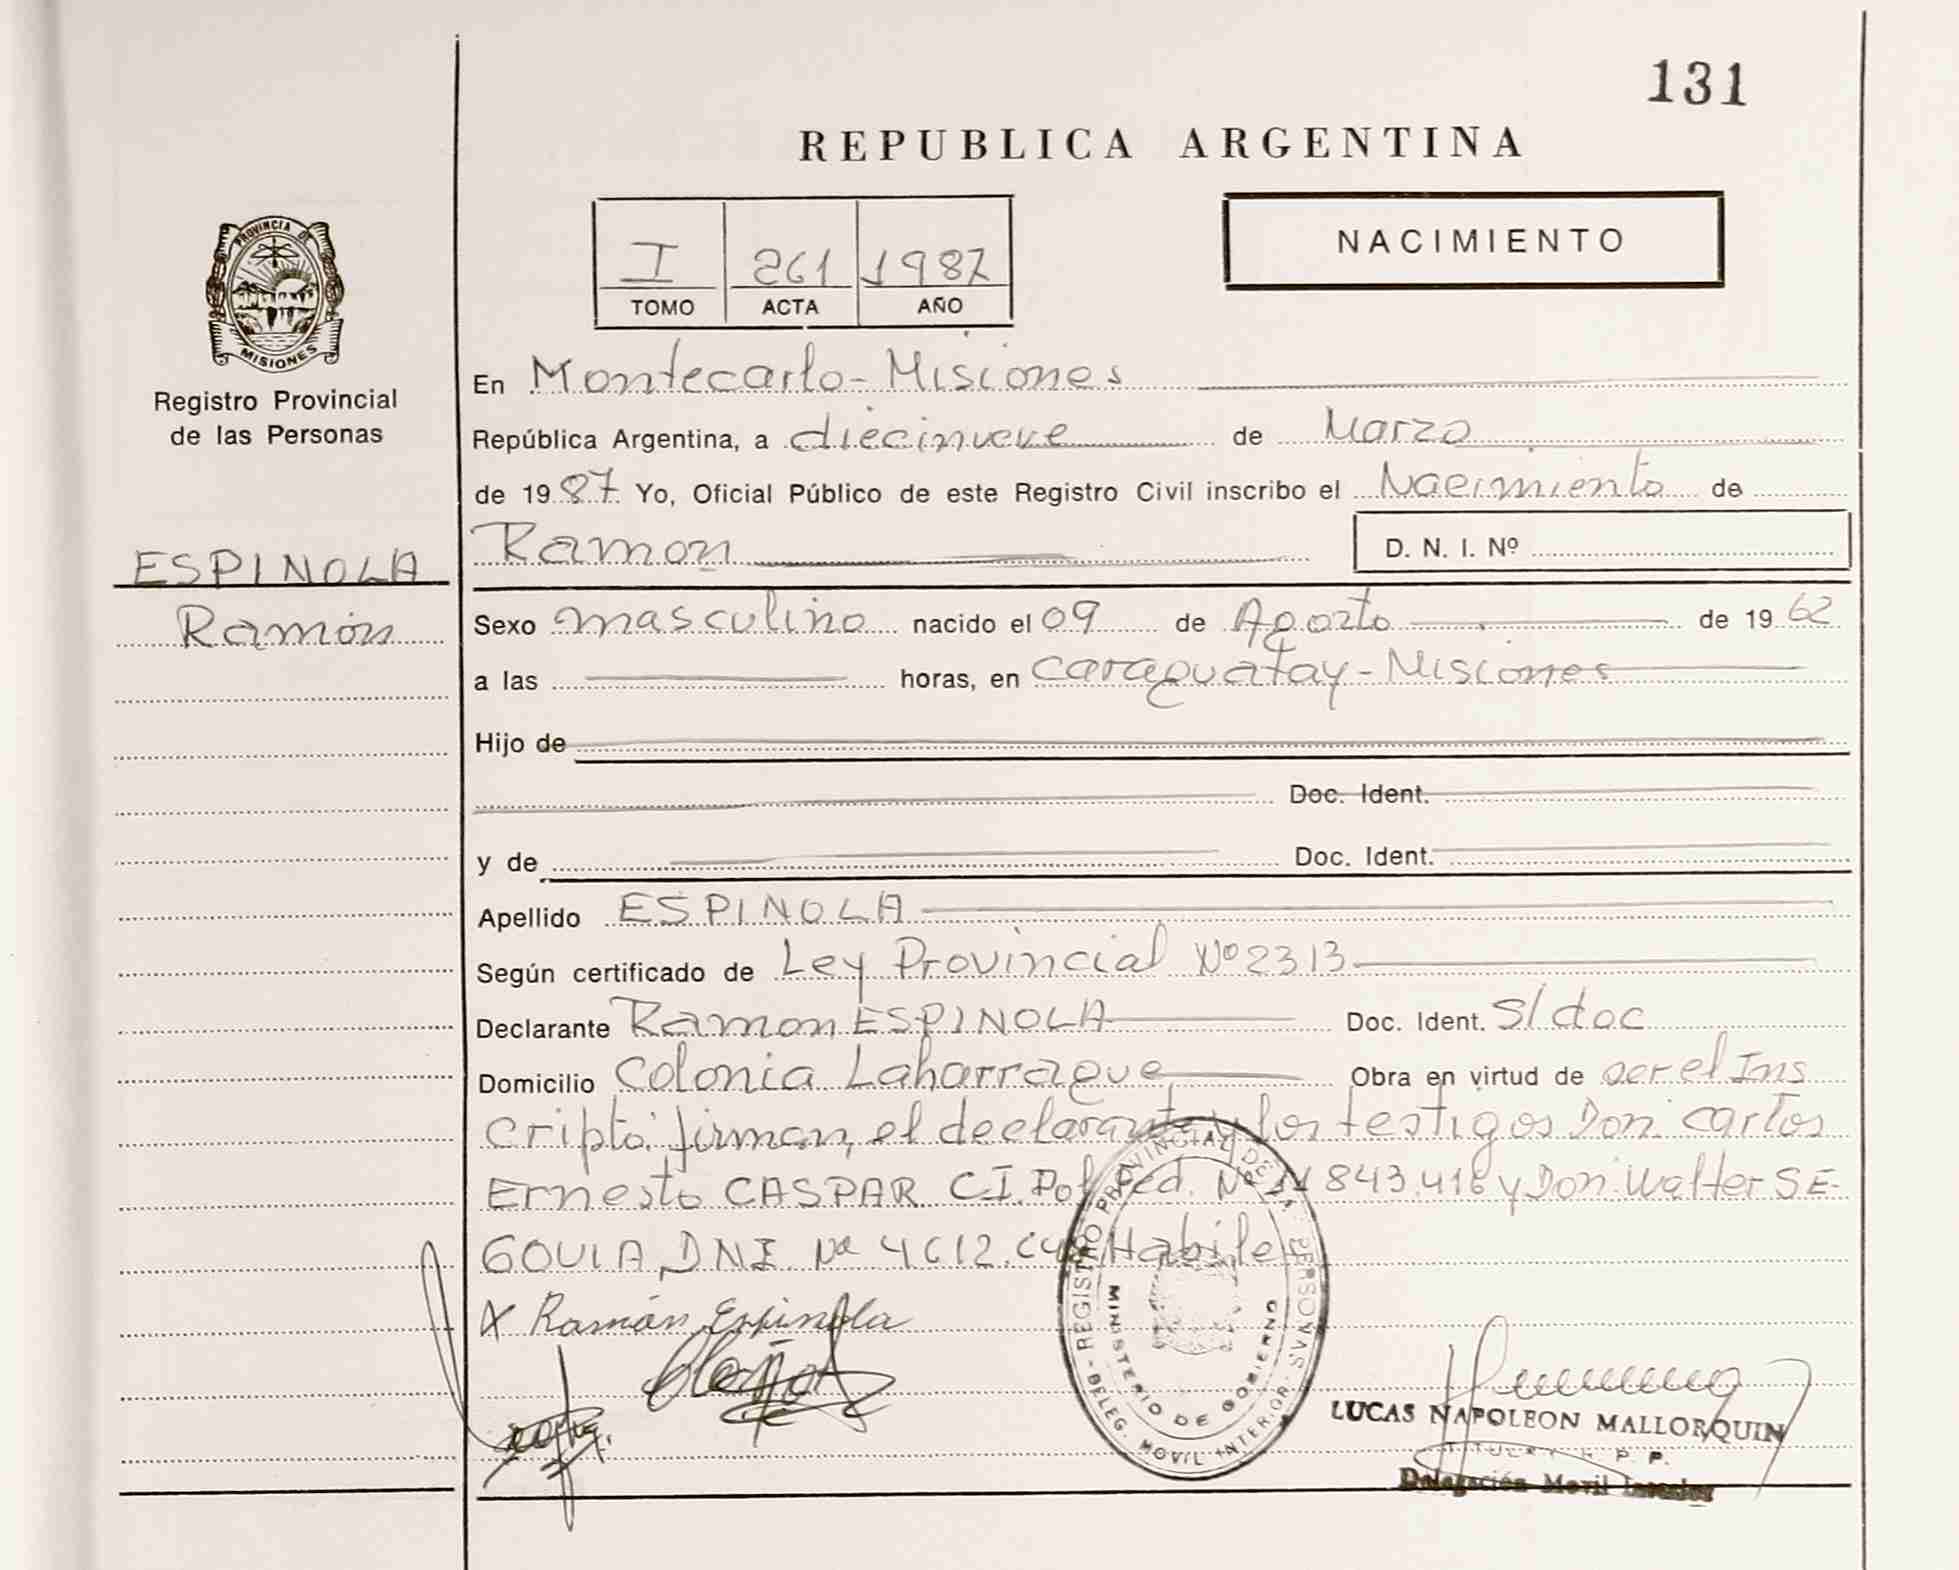 131
REPUBLICA ARGENTINA
I 261 1987
TOMO ACTA AÑO
NACIMIENTO
PROVINCIA DE MISIONES
Registro Provincial
de las Personas
ESPINOLA
Ramón
En Montecarlo - Misiones
República Argentina, a diecinueve de Marzo
de 1987 Yo, Oficial Público de este Registro Civil inscribo el Nacimiento de
Ramon D. N. I. Nº
Sexo masculino nacido el 09 de Agosto de 1962
a las horas, en Caraguatay - Misiones
Hijo de
Doc. Ident.
y de Doc. Ident.
Apellido ESPINOLA
Según certificado de Ley Provincial Nº 2313
Declarante Ramon ESPINOLA Doc. Ident. S/doc
Domicilio Colonia Laharrague Obra en virtud de ser el Ins
cripto. firman, el declarante y los testigos Don Carlos
Ernesto CASPAR CI. Pol. Fed. Nº 11843.416 y Don Walter SE-
GOVIA, DNI Nº 4612. Habiles
X Ramón Espinola
REGISTRO PROVINCIAL DE PERSONAS - DELEG. MOVIL INTERIOR -
MINISTERIO DE GOBIERNO
LUCAS NAPOLEON MALLORQUIN
R. P. P.
Delegación Movil Interior